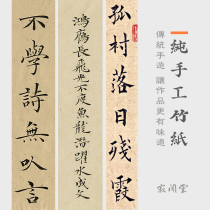 純手工竹紙
傳統手造 讓作品更有味道
孤村落日殘霞
鴻雁長飛光不度魚龍潛躍水成文
不學詩無以言